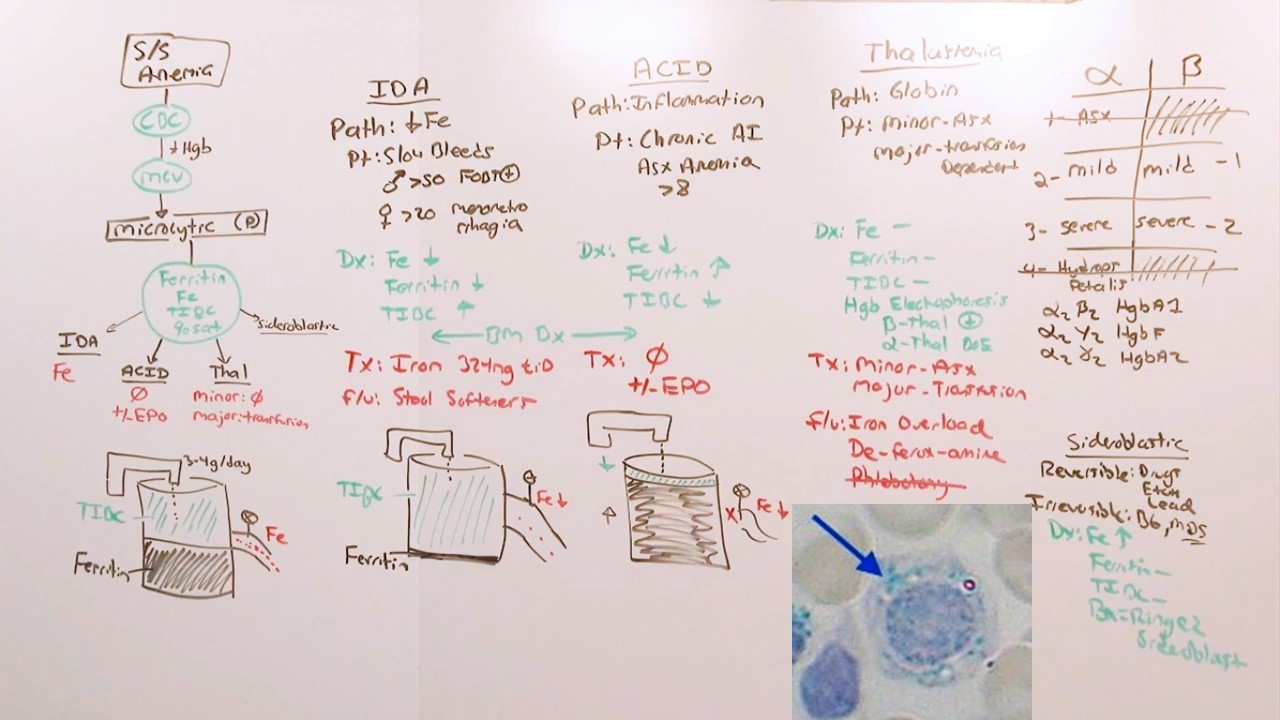 S/S
Anemia
CBC
↓Hgb
MCV
Microcytic (P)
Ferritin
Fe
TIBC
%sat
IDA
Fe
ACID
Ø
+/-EPO
Thal
minor: Ø
major: transfusion
sideroblastic
3-4g/day
TIBC
Ferritin
Fe
IDA
Path: ↓Fe
Pt: Slow Bleeds
♂ >50 FOBT⊕
♀ >20 menometro
rrhagia
Dx: Fe ↓
Ferritin ↓
TIBC ↑
← Bm Dx →
Tx: Iron 324mg TID
f/u: Stool Softeners
TIBC
Ferritin
Fe↓
ACID
Path: Inflammation
Pt: Chronic AI
Asx Anemia
>8
Dx: Fe ↓
Ferritin ↑
TIBC ↓
Tx: Ø
+/-EPO
↓
↑
x Fe ↓
Thalassemia
Path: Globin
Pt: Minor-Asx
Major-transfusion
Dependent
Dx: Fe –
Ferritin –
TIBC –
Hgb Electrophoresis
β-Thal ⊕
α-Thal DoE
Tx: Minor-Asx
Major-Transfusion
f/u: Iron Overload
De-ferox-amine
Phlebotomy
α β
1- Asx
2- mild mild -1
3- severe severe -2
4- Hydrops
Fetalis
α₂ β₂ HgbA1
α₂ γ₂ HgbF
α₂ δ₂ HgbA2
Sideroblastic
Reversible: Drugs
EtOH
Lead
Irreversible: B6, MDS
Dx: Fe ↑
Ferritin –
TIBC –
Bx = Ringed
Sideroblast